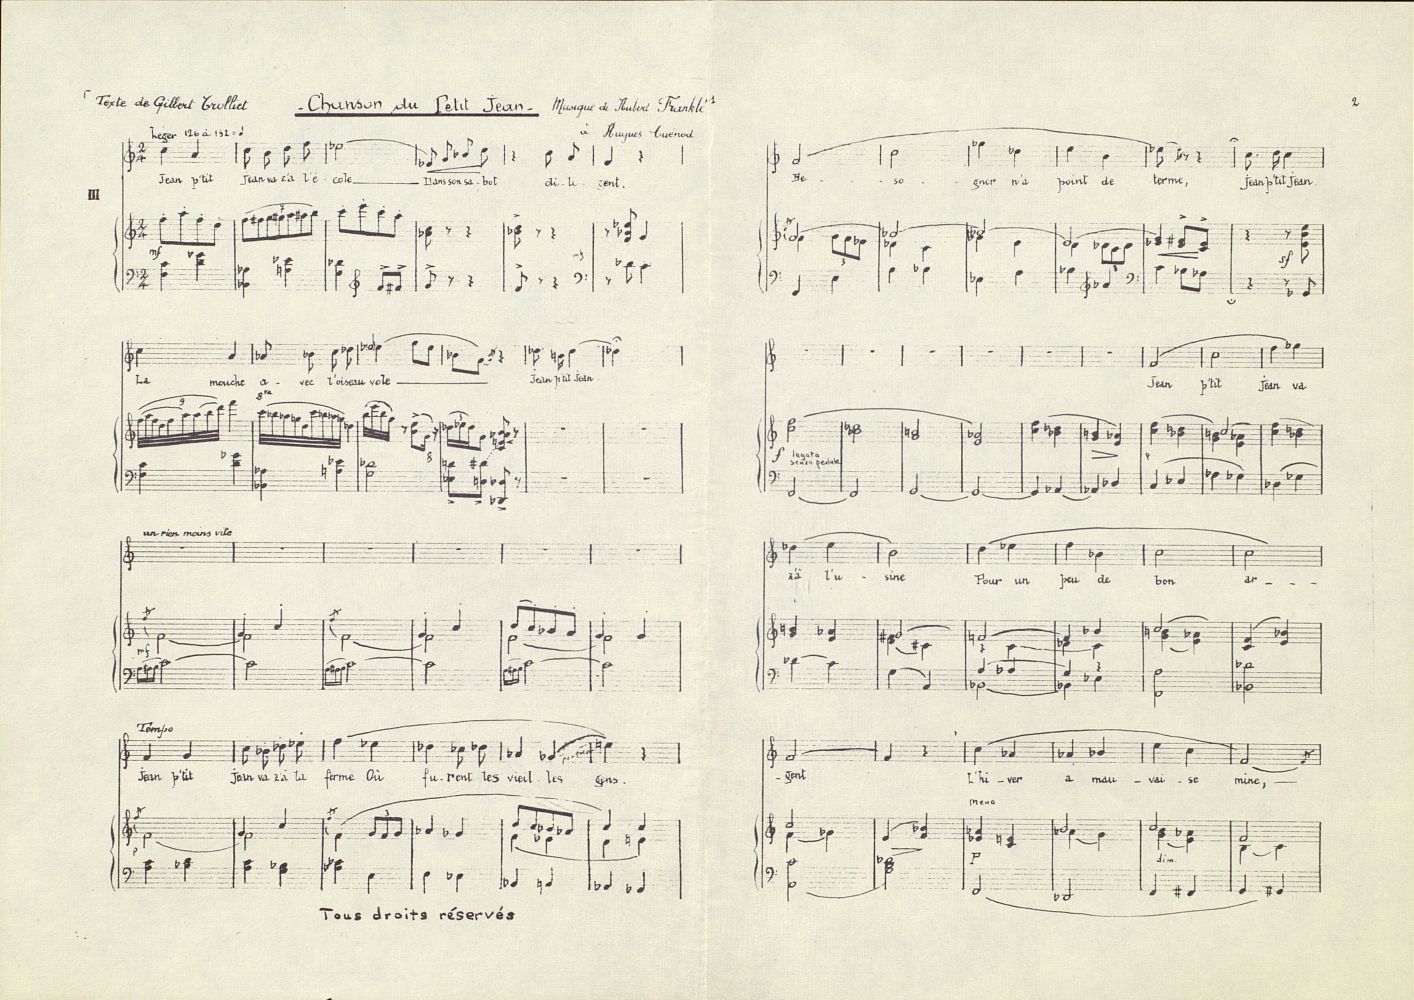 Texte de Gilbert Trolliet - Chanson du Petit Jean - Musique de
à Hugues Cuénod
Léger 126 à 132 =
III
Jean p'tit Jean va z'à l'é - cole Dans son sa - bot di - li - gent.
mf
mf
La mouche a - vec l'oiseau vole Jean p'tit Jean.
8va
9
un rien moins vite
mf
Tempo
Jean p'tit Jean va z'à la ferme Où fu - rent les vieil - les gens.
p
3
Tous droits réservés
2
Be - so - gner n'a point de terme, Jean p'tit Jean.
3
3
sf
Jean p'tit Jean va
f legato
senza pedale
p
z'à l'u - sine Pour un peu de bon ar -
- gent L'hi - ver a mau - vai - se mine,
meno
p
dim.